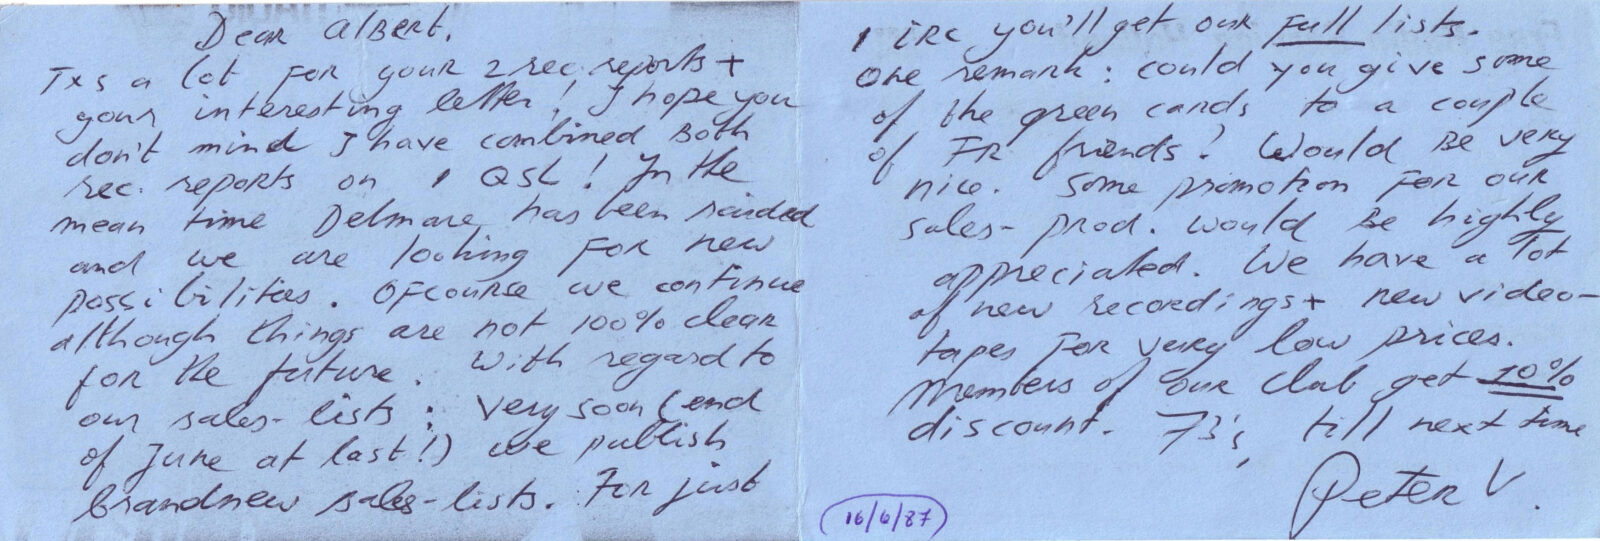 Dear Albert.
Txs a lot for your 2 rec. reports +
your interesting letter! I hope you
don't mind I have combined both
rec. reports on 1 QSL! In the
mean time Delmare has been raided
and we are looking for new
possibilities. Ofcourse we continue
although things are not 100% clear
for the future. With regard to
our sales-lists: very soon (end
of June at last!) we publish
brandnew sales-lists. For just
1 IRC you'll get our full lists.
One remark: could you give some
of the green cards to a couple
of FR friends? Would be very
nice. Some promotion for our
sales-prod. would be highly
appreciated. We have a lot
of new recordings + new video-
tapes for very low prices.
Members of our club get 10%
discount. 73's, till next time
Peter V.
16/6/87